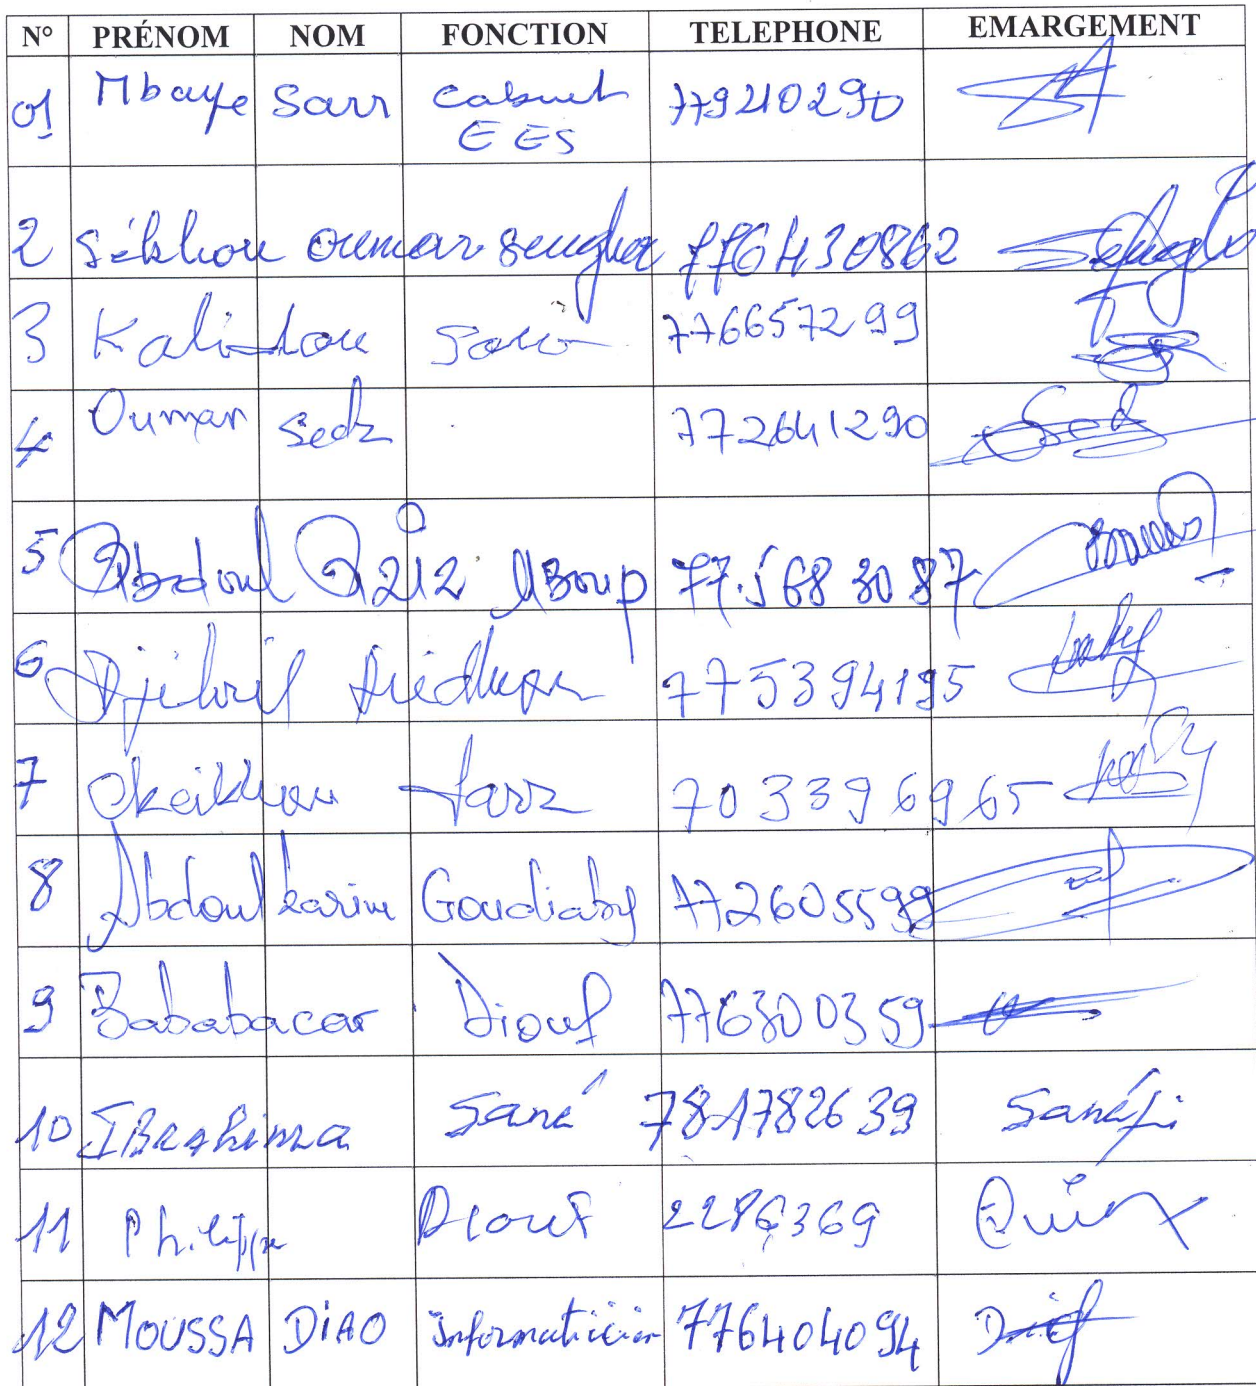 N° PRÉNOM NOM FONCTION TELEPHONE EMARGEMENT
01 Mbaye Sarr Cabinet EES 779210290
2 Sékhou Oumar Senghor 776430862
3 Kalidou 776657299
4 Oumar 772641290
5 Abdoul Aziz Mboup 77.568 30 87
6 Djibril 775394195
7 Cheikhou Sarr 703396965
8 Abdoul karim Goudiaby 772605599
9 Bababacar Diouf 776300359
10 IBRAhima Sané 781782639 Sané
11 Philippe Diouf
12 MOUSSA DIAO Informaticien 776404094